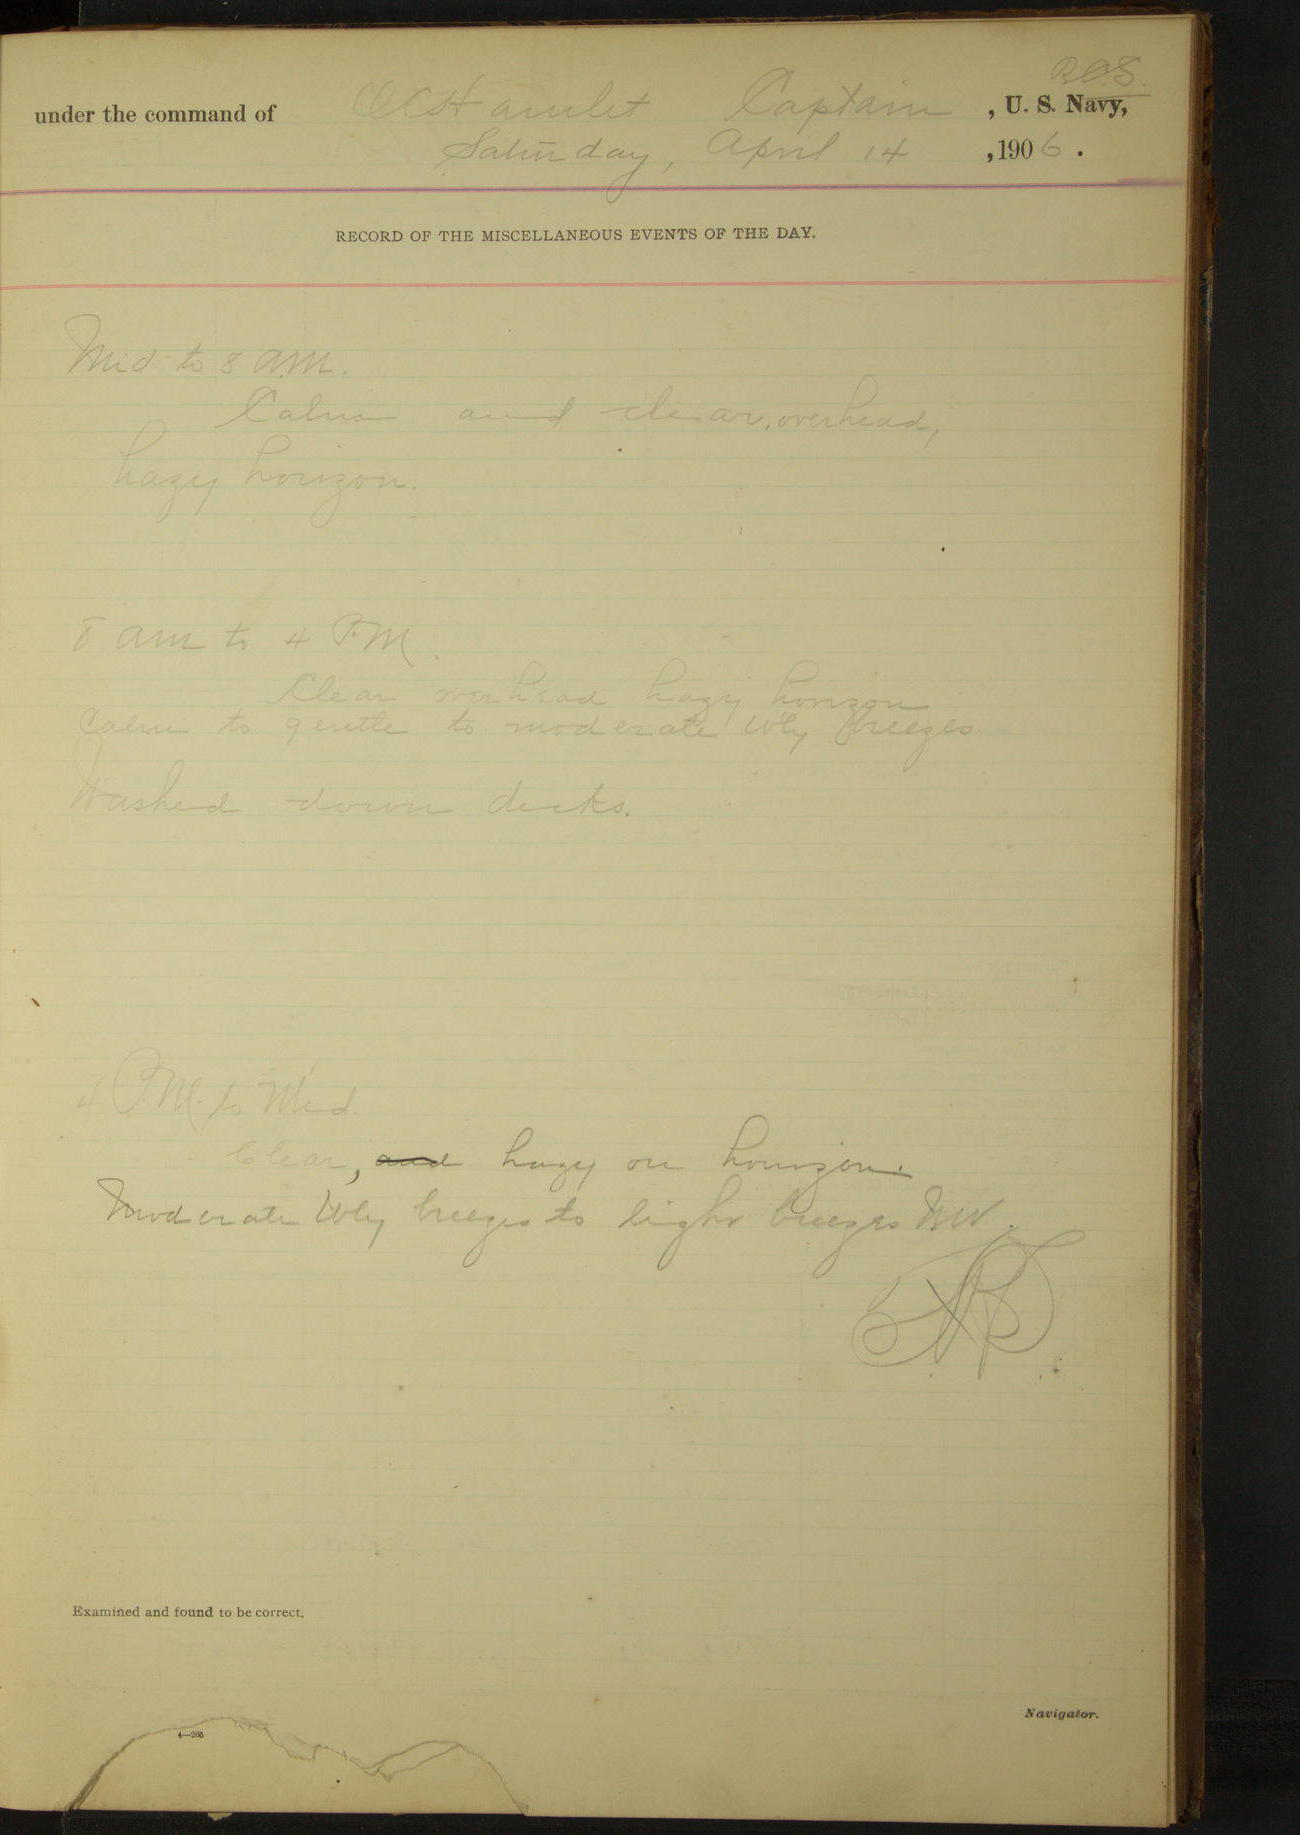 R.C.S.
under the command of O C Hamlet Captain , U. S. Navy,
Saturday, April 14 ,1906.
RECORD OF THE MISCELLANEOUS EVENTS OF THE DAY.
Mid to 8 A.M.
Calm and clear, overhead,
hazy horizon.
8 am to 4 P.M.
Clear overhead hazy horizon
Calm to gentle to moderate Wly breezes
Washed down decks.
4 P.M. to Mid.
Clear, and hazy on horizon.
Moderate Wly breezes to light breezes NW.
Examined and found to be correct.
Navigator.
4—205